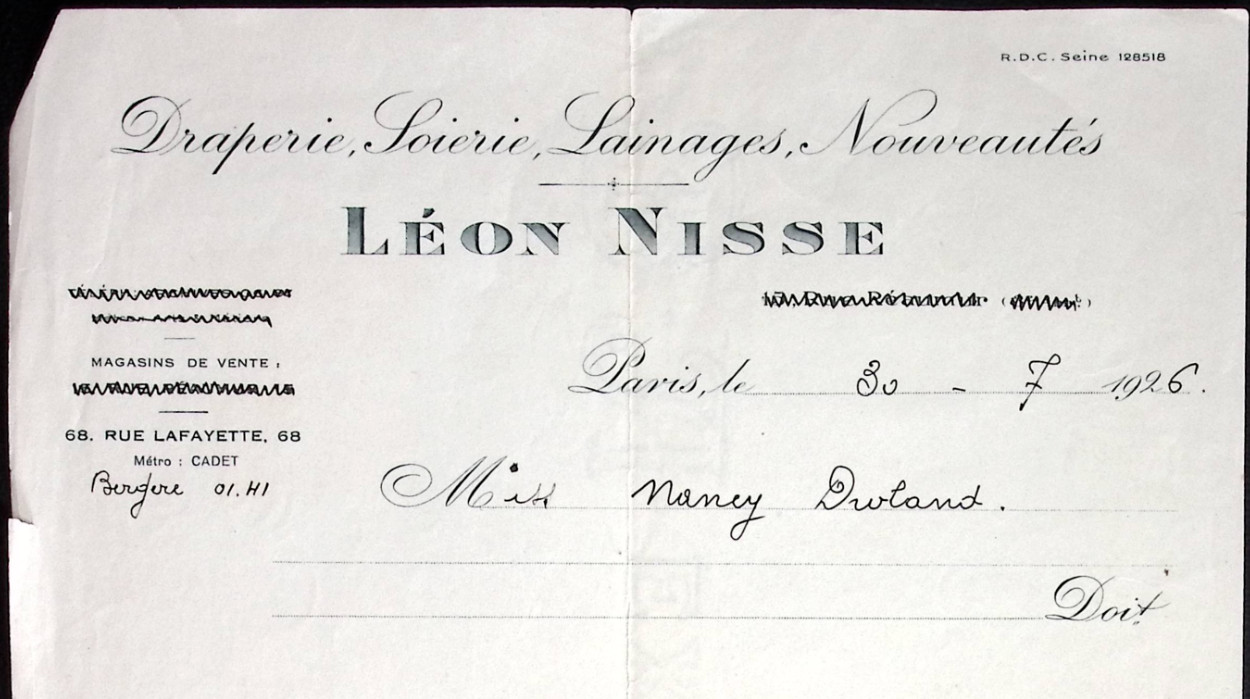 R.D.C. Seine 128518
Draperie, Soierie, Lainages, Nouveautés
LÉON NISSE
MAGASINS DE VENTE :
68. RUE LAFAYETTE, 68
Métro : CADET
Bergere 01.41
Paris, le 30 - 7 1926.
Miss Nancy
Doit